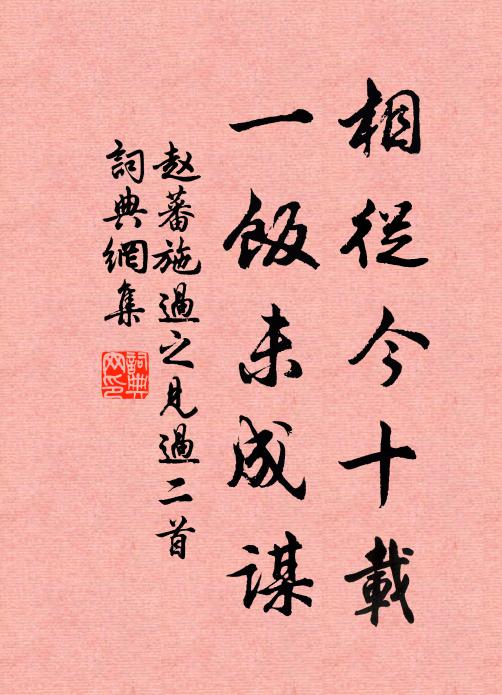 相從今十載
一飯未成謀
赵蕃施過之見過二首
詞典網集
詞典網印